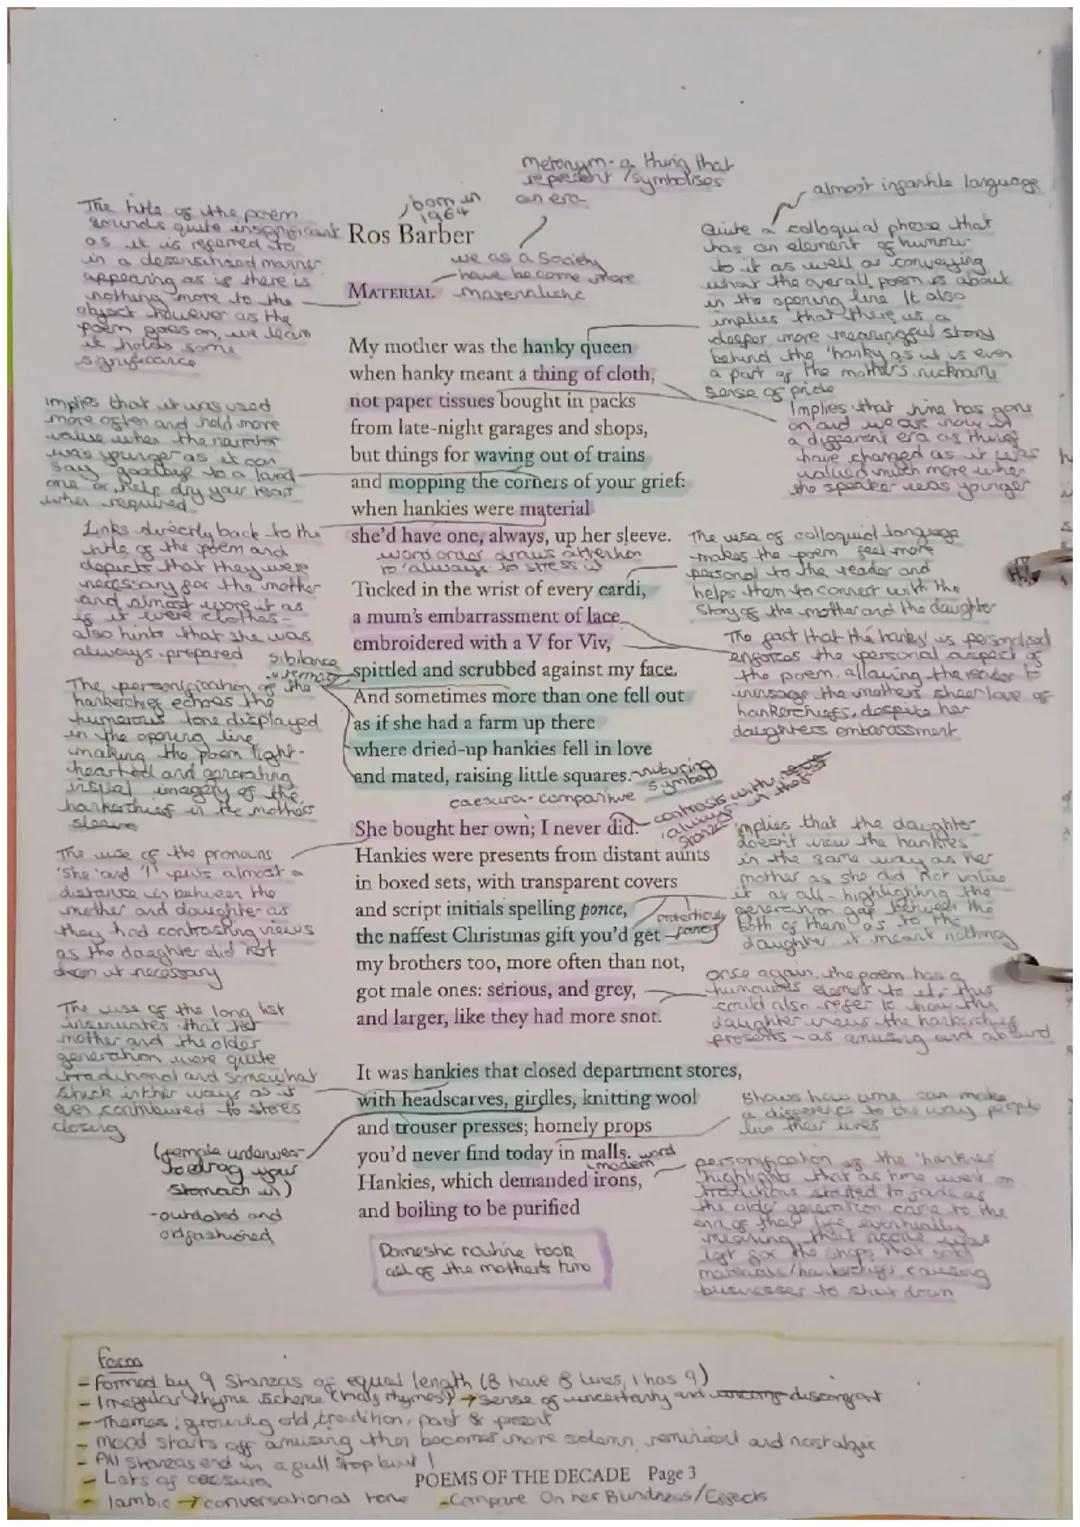 metonym - a thing that
represent / symbolises
an era
born in
1964
almost infantile language
The title of the poem
sounds quite insignificant
as it is referred to
in a desensitised manner
appearing as if there is
nothing more to the
object however as the
poem goes on, we learn
it holds some
significance
Ros Barber
we as a society
have become more
materialistic
MATERIAL
Quite a colloquial phrase that
has an element of humour
to it as well as conveying
what the overall poem is about
in the opening line. It also
implies that there is a
deeper more meaningful story
behind the 'hanky as it is even
a part of the mother's nickname
sense of pride
My mother was the hanky queen
when hanky meant a thing of cloth,
not paper tissues bought in packs
from late-night garages and shops,
but things for waving out of trains
and mopping the corners of your grief:
when hankies were material
she'd have one, always, up her sleeve.
implies that it was used
more often and held more
value when the narrator
was younger as it can
say goodbye to a loved
one or help dry your tears
when required
Implies that time has gone
on and we are now in
a different era as things
have changed as it was
valued much more when
the speaker was younger
Links directly back to the
title of the poem and
depicts that they were
necessary for the mother
and almost wore it as
if it were clothes -
also hints that she was
always prepared
word order draws attention
to 'always' to stress it
The use of colloquial language
makes the poem feel more
personal to the reader and
helps them to connect with the
story of the mother and the daughter
Tucked in the wrist of every cardi,
a mum's embarrassment of lace
embroidered with a V for Viv,
spittled and scrubbed against my face.
And sometimes more than one fell out
as if she had a farm up there
where dried-up hankies fell in love
and mated, raising little squares.
sibilance
The fact that the hanky is personalised
enforces the personal aspect of
the poem, allowing the reader to
envisage the mothers sheer love of
hankerchiefs, despite her
daughters embarassment
The personification of the
hankerchief echoes the
humorous tone displayed
in the opening line
making the poem light-
hearted and generating
visual imagery of the
hankerchief in the mothers
sleeve
nurturing
symbol
caesura - comparitive
contrasts with
'always' in the first
stanza
She bought her own; I never did.
Hankies were presents from distant aunts
in boxed sets, with transparent covers
and script initials spelling ponce,
the naffest Christmas gift you'd get –
my brothers too, more often than not,
got male ones: serious, and grey,
and larger, like they had more snot.
The use of the pronouns
'she' and 'I' puts almost a
distance in between the
mother and daughter as
they had contrasting views
as the daughter did not
deem it necessary
implies that the daughter
doesn't view the hankies
in the same way as her
mother as she did not value
it at all - highlighting the
generation gap between the
both of them as to the
daughter it meant nothing
once again, the poem has a
humourous element to it, this
could also refer to how the
daughter views the hankerchief
presents - as amusing and absurd
The use of the long list
insinuates that her
mother and the older
generation were quite
traditional and somewhat
stuck in their ways as it
even contributed to stores
closing
It was hankies that closed department stores,
with headscarves, girdles, knitting wool
and trouser presses; homely props
you'd never find today in malls.
Hankies, which demanded irons,
and boiling to be purified
modern
word
(female underwear
to drag your
stomach in)
- outdated and
old fashioned
shows how time can make
a difference to the way people
live their lives
personification of the 'hankies'
highlights that as time went on
traditions started to fade as
the older generation came to the
end of their life, eventually
meaning that noone was
left for the shops that sold
materials/hankerchiefs, causing
businesses to shut down
Domestic routine took
all of the mothers time
Form
- Formed by 9 stanzas of equal length (8 have 8 lines, 1 has 9)
- Irregular rhyme scheme (half rhymes) → sense of uncertainty and
- Themes: growing old, tradition, past & present
- mood starts off amusing then becomes more solemn, reminiscent and nostalgic
- All stanzas end in a full stop but 1
- Lots of caesura
POEMS OF THE DECADE Page 3
- Iambic → conversational tone
- Compare On her Blindness/Effects